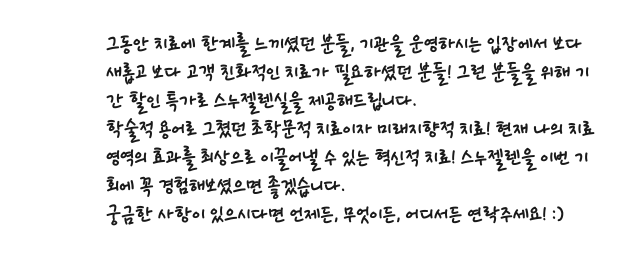 그동안 치료에 한계를 느끼셨던 분들, 기관을 운영하시는 입장에서 보다
새롭고 보다 고객 친화적인 치료가 필요하셨던 분들! 그런 분들을 위해 기
간 할인 특가로 스누젤렌실을 제공해드립니다.
학술적 용어로 그쳤던 초학문적 치료이자 미래지향적 치료! 현재 나의 치료
영역의 효과를 최상으로 이끌어낼 수 있는 혁신적 치료! 스누젤렌을 이번 기
회에 꼭 경험해보셨으면 좋겠습니다.
궁금한 사항이 있으시다면 언제든, 무엇이든, 어디서든 연락주세요! :)